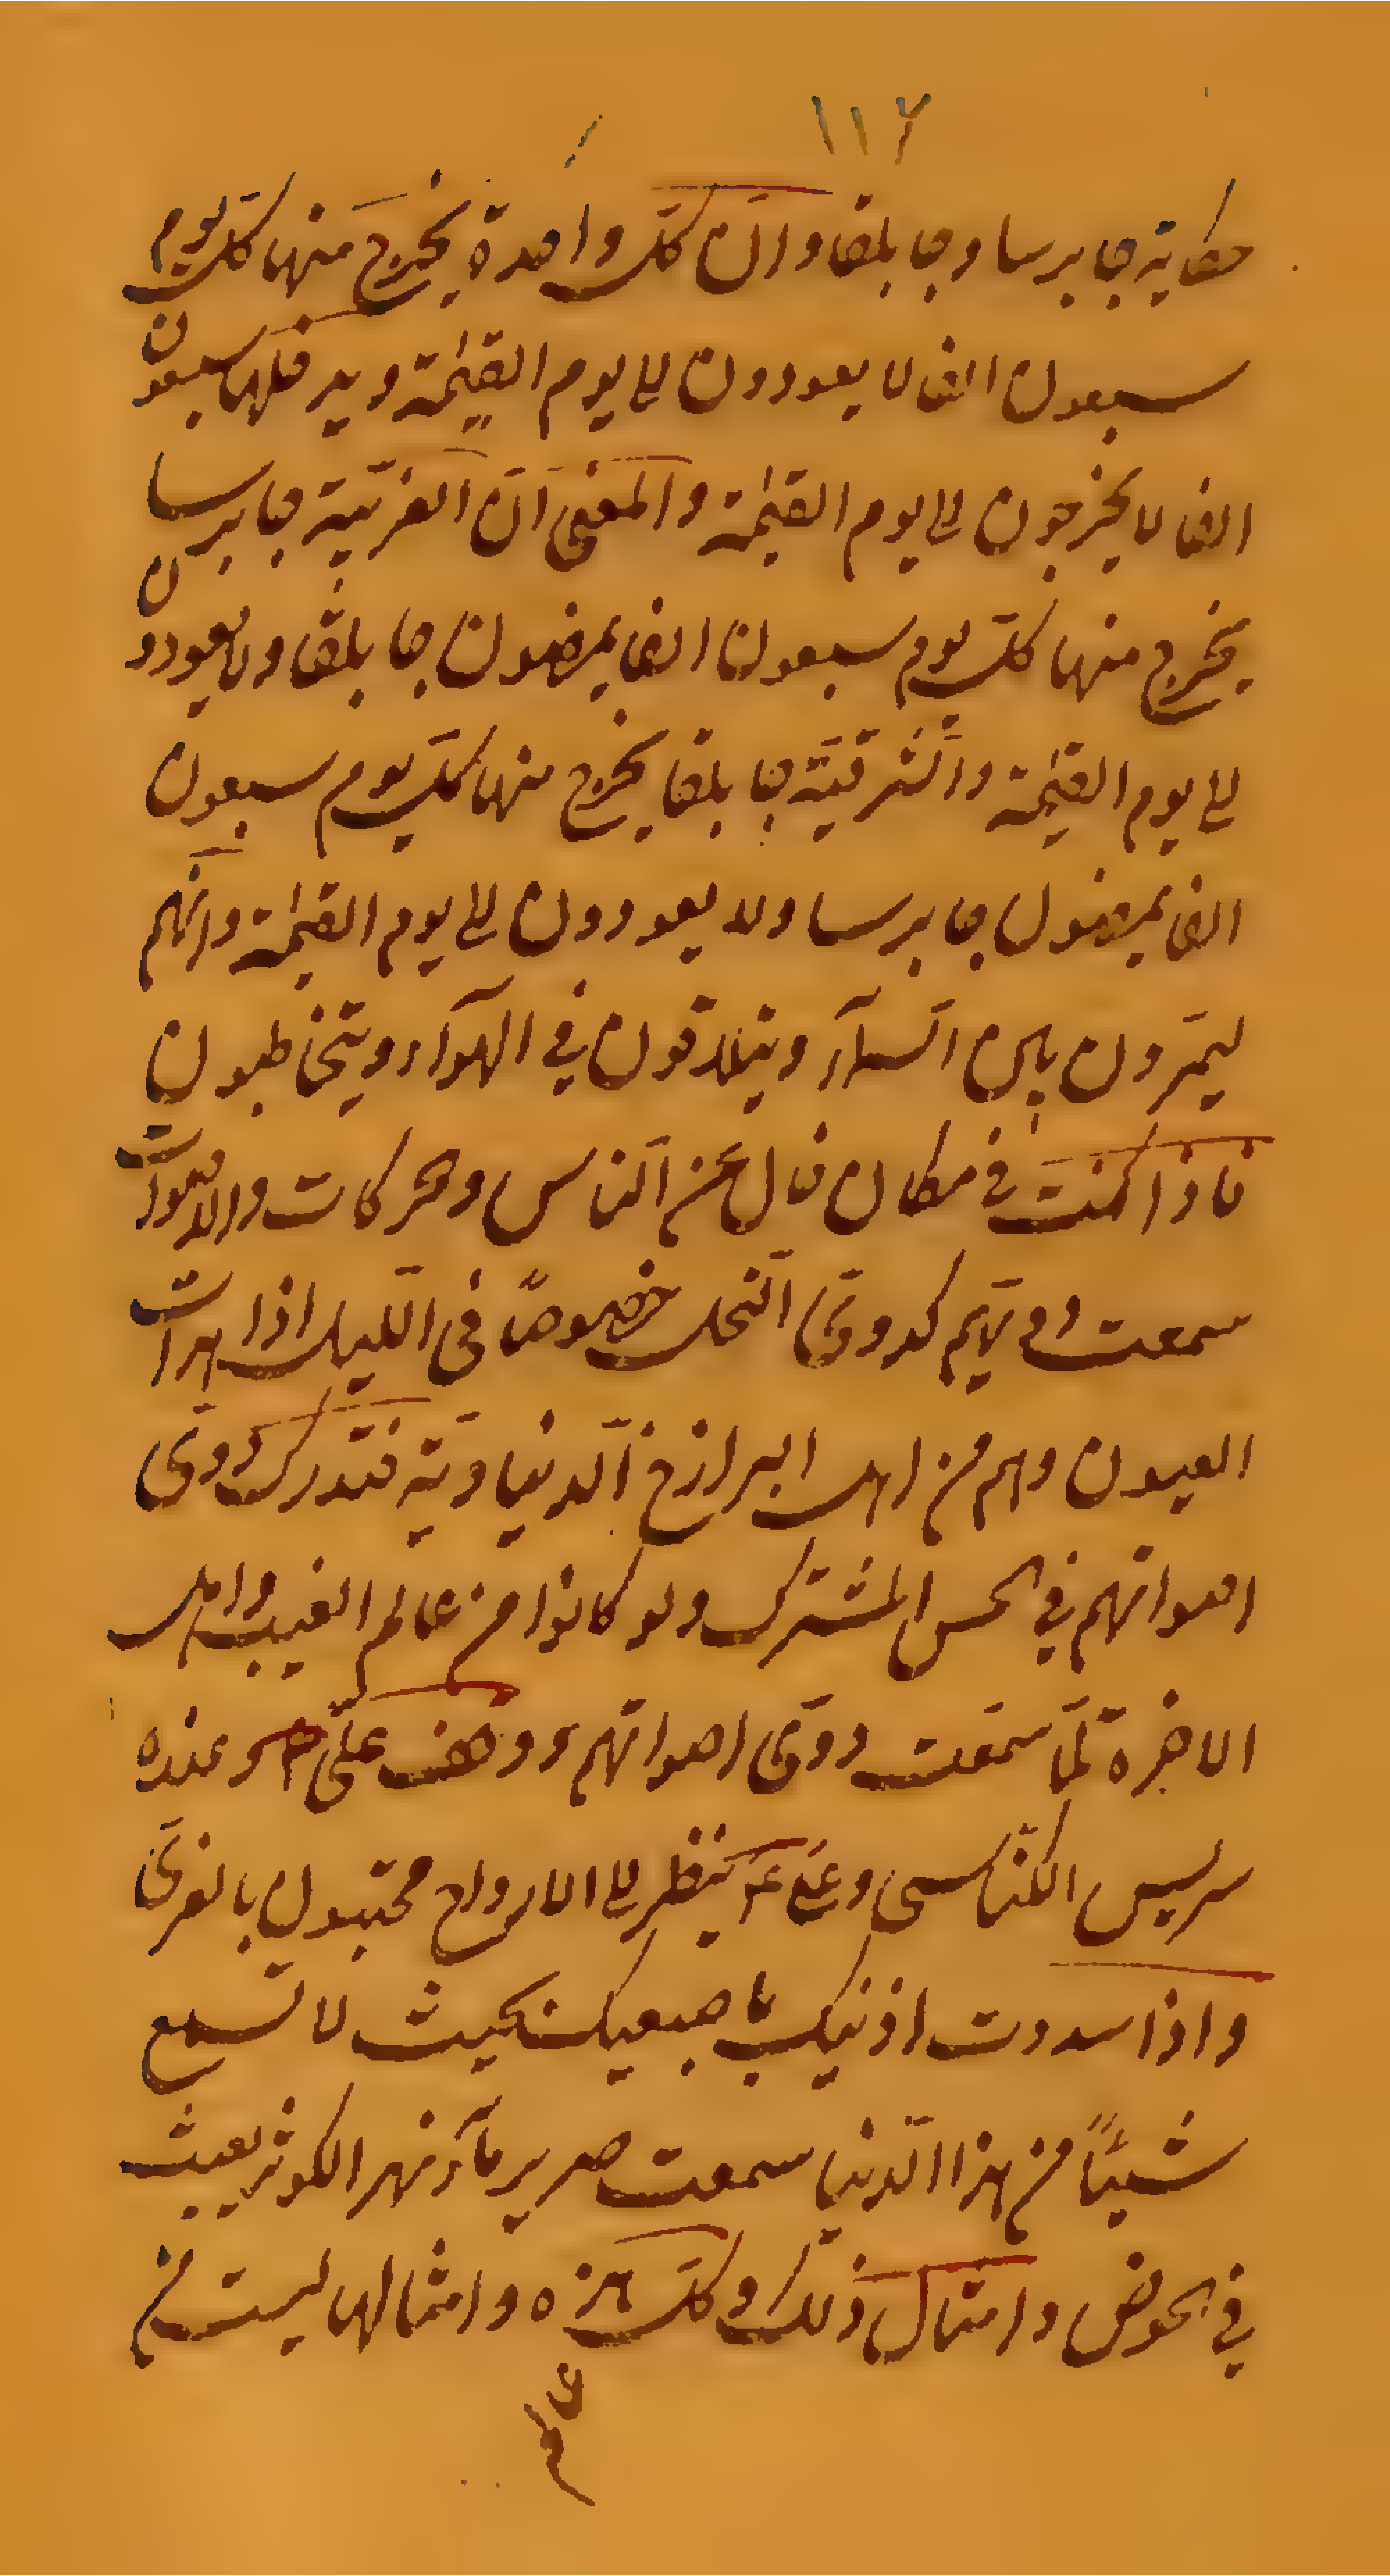 ١١٢
حكاية جابرسا وجابلقا وانّ كلّ واحدة يخرج منها كلّ يوم
سبعون الفا لا يعودون الى يوم القيٰمة ويدخلها سبعون
الفا لا يخرجون الى يوم القيٰمة والمعنى انّ الغربيّة جابرسا
يخرج منها كلّ يوم سبعون الفا يمضون جابلقا ولا يعودون
الى يوم القيٰمة والشّرقيّة جابلقا يخرج منها كلّ يوم سبعون
الفا يمضون جابرسا ولا يعودون الى يوم القيٰمة وانّهم
ليمرّون بين السّمآء ويتلاقون في الهوآء ويتخاطبون
فاذا كنت في مكان خال عن النّاس وحركات والاصوات
سمعت دويّهم كدويّ النّحل خصوصًا في اللّيل اذا هدأت
العيون وهم من اهل البرازخ الّدنياويّة فتدرك دويّ
اصواتهم في الحس المشترك ولو كانوا من عالم الغيب واهل
الاخرة لمّا سمعت دويّ اصواتهم ووصف عليّ ع وعنده
سريس الكنّاسى وعلي ع ينظر الى الارواح محتبون بالغريّ
واذا سددت اذنيك باصبعيك بحيث لا تسمع
شيئًا من هذا الّدنيا سمعت صرير مآء نهر الكوثر يعبث
في الحوض وامثال ذلك وكلّ هذه وامثالها ليست من
عالم